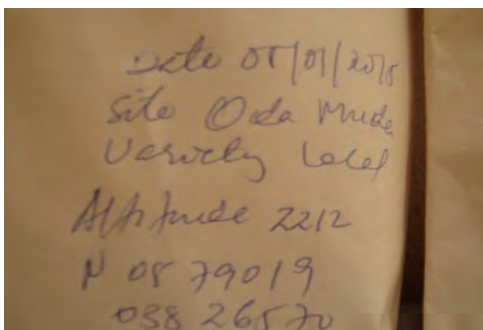 Date 08/01/2018
Site Oda Muda
Variety Local
Altitude 2212
N 08 79019
038 26570